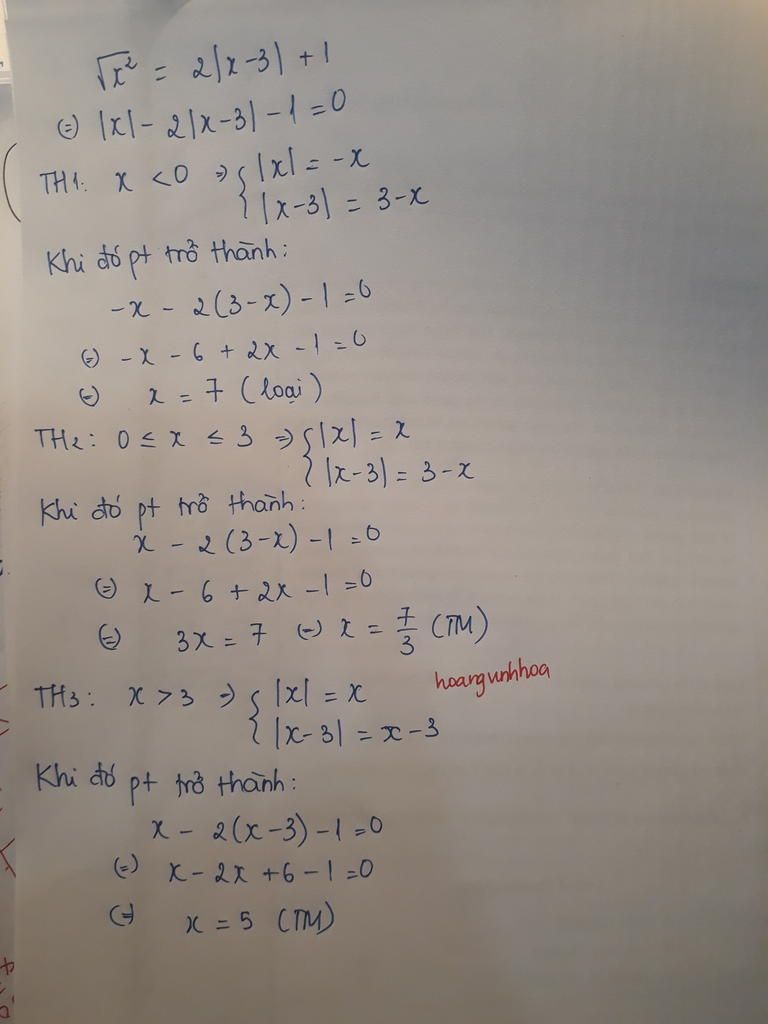 √x² = 2|x-3| + 1
(=) |x| - 2|x-3| - 1 = 0
TH1: x < 0 => { |x| = -x
|x-3| = 3-x
Khi đó pt trở thành:
-x - 2(3-x) - 1 = 0
(=) -x - 6 + 2x - 1 = 0
(=) x = 7 (loại)
TH2: 0 ≤ x ≤ 3 => { |x| = x
|x-3| = 3-x
Khi đó pt trở thành:
x - 2(3-x) - 1 = 0
(=) x - 6 + 2x - 1 = 0
(=) 3x = 7 (=) x = 7/3 (TM)
hoangunhhoa
TH3: x > 3 => { |x| = x
|x-3| = x-3
Khi đó pt trở thành:
x - 2(x-3) - 1 = 0
(=) x - 2x + 6 - 1 = 0
(=) x = 5 (TM)